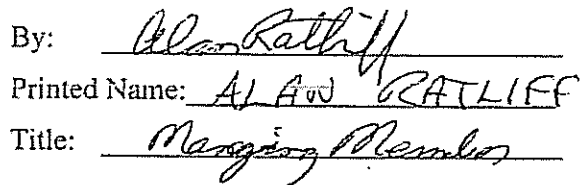 By: Alan Ratliff
Printed Name: ALAN RATLIFF
Title: Managing Member